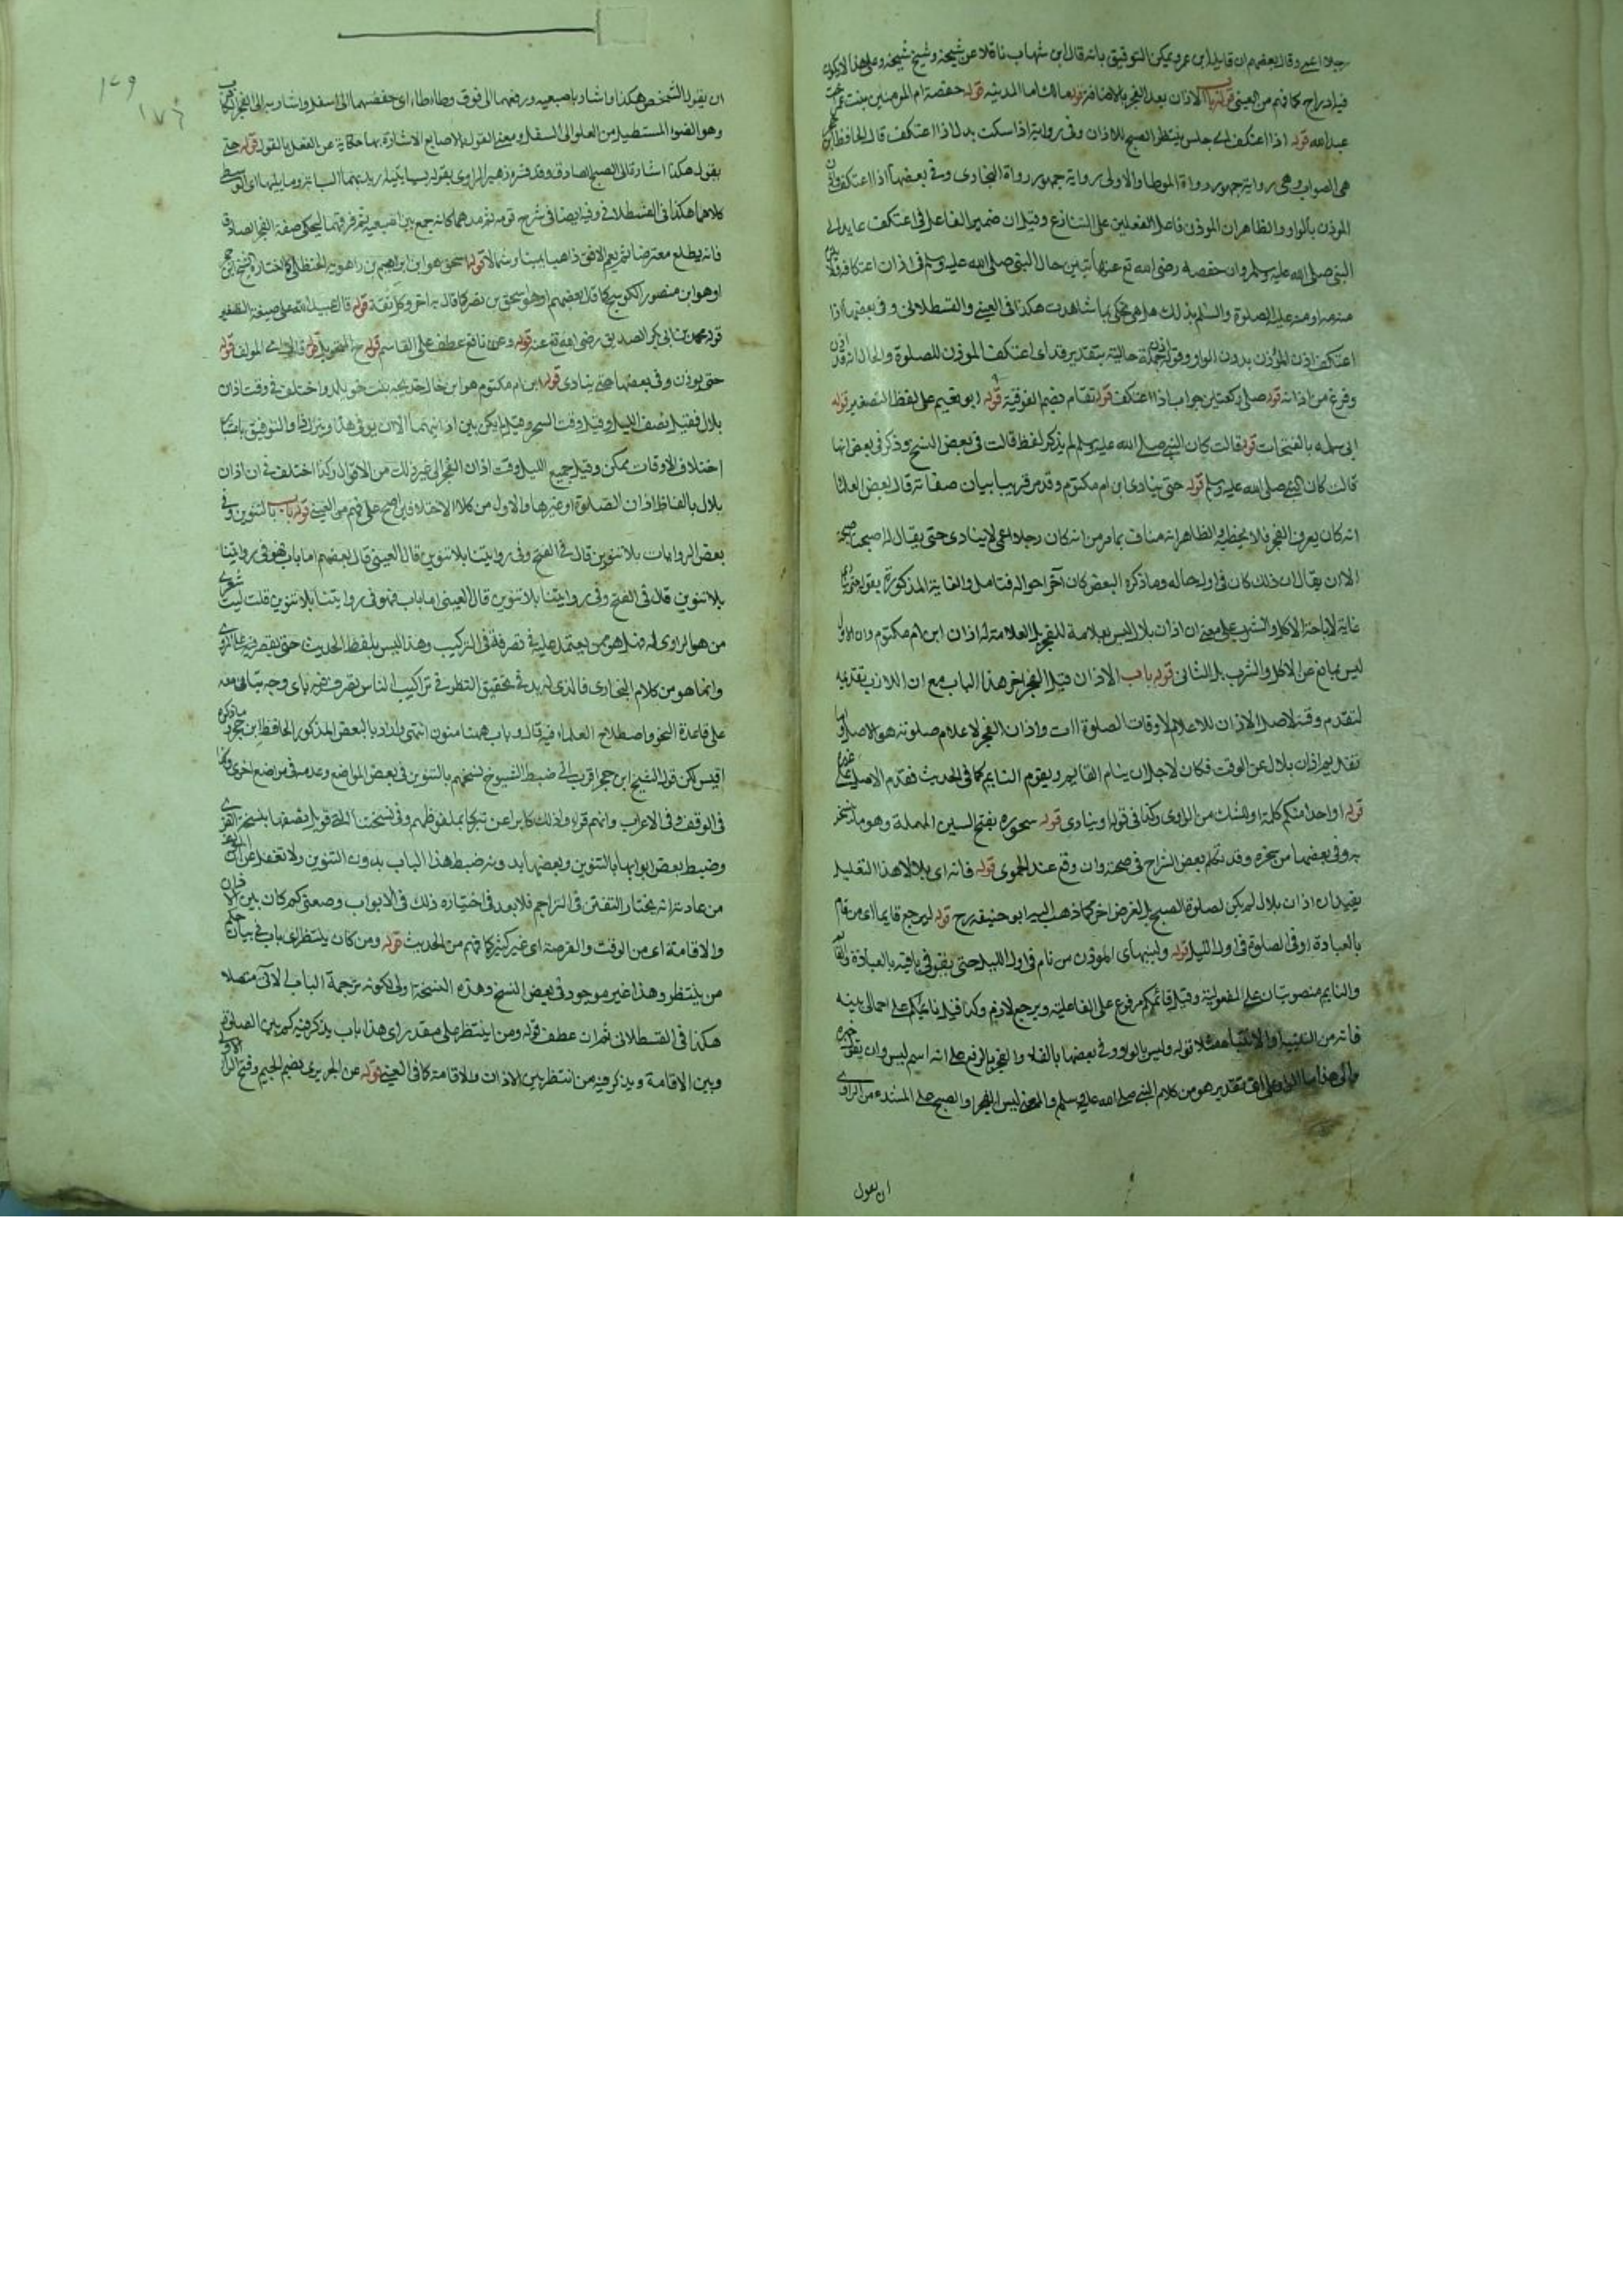 رجلا اعمى وقال بعضهم ان قايله ابن عمر ويمكن التوفيق بانه قال ابن شهاب ناقلا عن شيخه وشيخ شيخه وعلى هذا لا يكون
فيه ادراج كما فهم من العيني قوله باب الاذان بعد الفجر بالاضافة قوله مالك امام المدينة قوله حفصة ام المومنين بنت عمر
عبد الله قوله اذا اعتكف اى جلس ينتظر الصبح للاذان وفى رواية اذا سكت بدل اذا اعتكف قال الحافظ ابن
هى الصواب وهى رواية جمهور رواة الموطا والاولى رواية جمهور رواة البخارى وفى بعضها اذا اعتكف
الموذن بالواو والظاهر ان الموذن فاعل الفعلين على التنازع وقيل ان ضمير الفاعل فى اعتكف عايد الى
النبى صلى الله عليه وسلم وان حفصة رضى الله تع عنها تبين حال النبى صلى الله عليه وسلم فى اذان اعتكافه فلا
منه عليه الصلوة والسلام بذلك بل هى تحكى بما شاهدت هكذا فى العينى والقسطلانى وفى بعضها اذا
اعتكف اذن الموذن بدون الواو وقوله جملة حالية بتقدير قد اى اعتكف الموذن للصلوة والحال انه قد
وفرغ من اذانه قوله صلى ركعتين جواب اذا اعتكف قوله تقام بضم الفوقية قوله ابو نعيم على لفظ التصغير قوله
ابى سلمه بالفتحات قوله قالت كان النبى صلى الله عليه وسلم لم يذكر لفظ قالت فى بعض النسخ وذكر فى بعض انها
قالت كان النبى صلى الله عليه وسلم قوله حتى ينادى ابن ام مكتوم وقد مر قريبا بيان صفاته قال بعض العلما
انه كان يعرف الفجر فلا يخطيه الظاهر انه مناف بما مر من انه كان رجلا اعمى لا ينادى حتى يقال له اصبحت
الا ان يقال ان ذلك كان فى اول حاله وما ذكره البعض كان آخر احواله فتامل والغاية المذكورة بقوله حتى
غاية لاباحة الاكل والشرب على معنى ان اذان بلال ليس بعلامة للفجر بل العلامة له اذان ابن ام مكتوم وان الاول
ليس بمانع عن الاكل والشرب بل الثانى قوله باب الاذان قبل الفجر اخر هذا الباب مع ان اللازب تقديمه
لتقدم وقته لاصل الاذان للاعلام لاوقات الصلوة واذان الفجر لاعلام صلوته هو الاصل
تقديم اذان بلال عن الوقت فكان لاجل ان ينام القايم ويقوم النايم كما فى الحديث فقدم الاصل
قوله او احدا منكم كلمة او للشك من الراوى وكذا فى قوله او ينادى قوله سحوره بفتح السين المهملة وهو ما
به وفى بعضها من سحره وقد تكلم بعض الشراح فى صحته وان وقع عند الحموى قوله فانه اى بلالا هذا التعليل
يفيد ان اذان بلال لم يكن لصلوة الصبح بل لغرض اخر كما ذهب اليه ابو حنيفه رح قوله ليرجع قايما اى من قام
بالعبادة او فى الصلوة فى اول الليل قوله ولينبه اى الموذن من نام فى اول الليل حتى باقيه بالعبادة
والنايم منصوبان على المفعولية وقيل قائمكم مرفوع على الفاعلية ويرجع لازم وكذا قيل نائمكم على احمالى ينبه
فانه من التنبيه او الانتباه قوله وليس بالواو وفى بعضها بالفاء والفجر بالرفع على انه اسم ليس وان يقول
تقدير هو من كلام النبى صلى الله عليه وسلم والمعنى ليس الفجر او الصبح على من الراوى
ان يقول
١٧٩
١٧٤
ان يقول الشخص هكذا واشار باصبعيه ورفعهما الى فوق وطاءطاء اى خفضهما الى اسفل واشار به الى الفجر
وهو الضوء المستطيل من العلو الى السفل ومعنى القول بالاصابع الاشارة بها حكاية عن الفعل بالقول قوله حتى
يقول هكذا اشارة الى الصبح الصادق وقد فسره زهير الراوى بقوله بسبابتيه يريد بهما السبابة وما يليها اى الوسطى
كلاهما هكذا فى القسطلانى وفيه ايضا فى شرح قوله ثم مدهما كانه جمع بين اصبعيه ثم فرقهما ليحكى صفة الفجر الصادق
فانه يطلع معترضا ثم يعم الافق ذاهبا يمينا وشمالا قوله اسحق هو ابن ابراهيم بن راهويه الحنظلى كما اختاره
او هو ابن منصور الكوسج كما قال بعضهم او هو اسحق بن نصر كما قال به اخر وكل ثقة قوله قال عبيد الله على صيغة التصغير
قوله محمد بن ابى بكر الصديق رضى الله تع عنه قوله وعن نافع عطف على القاسم قوله ح التحويل قوله قال اى المولف قوله
حتى يوذن وفى بعضها حتى ينادى قوله ابن ام مكتوم هو ابن خال خديجة بنت خويلد واختلف فى وقت اذان
بلال فقيل نصف الليل وقيل وقت السحر وقيل لم يكن بين اذانيهما الا ان يرقى هذا وينزل ذا والتوفيق باعتبار
اختلاف الاوقات ممكن وقيل جميع الليل وقت اذان الفجر الى غير ذلك من الاقوال وكذا اختلف فى ان اذان
بلال بالفاظ اذان الصلوة او غيرها والاول من كلا الاختلافين اصح على فهم من العينى قوله باب بالتنوين وفى
بعض الروايات بلا تنوين قال فى الفتح وفى روايتنا بلا تنوين قال العينى قال بعضهم اما باب فهو فى روايتنا
بلا تنوين قال فى الفتح وفى روايتنا بلا تنوين قال العينى اما باب فهو فى روايتنا بلا تنوين قلت ليت شعرى
من هو الراوى له فهل هو ممن يعتمد عليه فى تصرفه فى التركيب وهذا ليس بلفظ الحديث حتى يقتصر فيه على المروى
وانما هو من كلام البخارى فالذى له يد فى تحقيق النظر فى تراكيب الناس يتصرف فيه باى وجه يتاتى معه
على قاعدة النحو واصطلاح العلماء فيه قال وباب ههنا منون انتهى واراد بالبعض المذكور الحافظ ابن حجر وما ذكره
اقيس لكن قول الشيخ ابن حجر اقرب الى ضبط الشيوخ نسخهم بالتنوين فى بعض المواضع وعدمه فى مواضع اخرى
فى الوقف وفى الاعراب وانهم قروا ذلك كابرا عن تبركا بملفوظهم وفى نسختنا
وضبط بعض ابوابها بالتنوين وبعضها بد ونه ضبط هذا الباب بدون التنوين ولا تغفل عن ان
من عادته انه يختار التفنن فى التراجم فلا بعد فى اختياره ذلك فى الابواب وصعتى كم كان بين الاذان
والاقامة اى من الوقت والفرصة اى غير كثير كما فهم من الحديث قوله ومن كان ينتظر اى باب فى بيان حكم
من ينتظر وهذا غير موجود فى بعض النسخ وهذه النسخة اولى لكونه ترجمة الباب الاتى متصلا
هكذا فى القسطلانى ثم ان عطف قوله ومن ينتظر على مقدر اى هذا باب يذكر فيه كم بين الصلوة
وبين الاقامة ويذكر فيه من انتظر بين الاذان والاقامة كما فى العينى قوله عن الجريرى بضم الجيم وفتح الراء الاولى